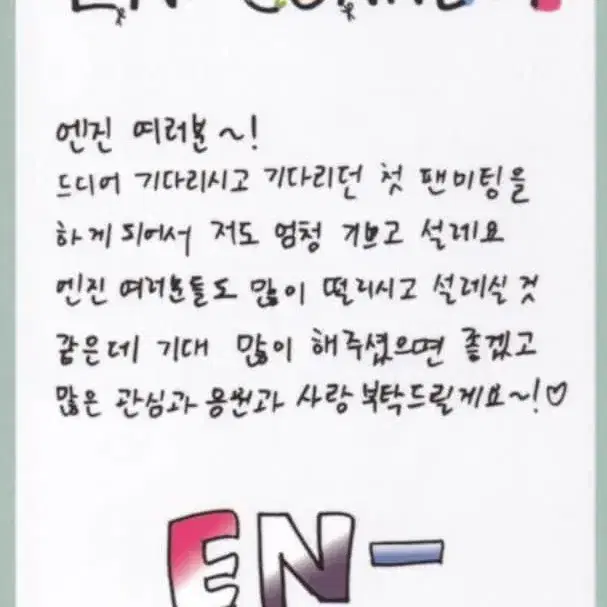 EN-CONNECT
엔진 여러분~!
드디어 기다리시고 기다리던 첫 팬미팅을
하게 되어서 저도 엄청 기쁘고 설레요
엔진 여러분들도 많이 떨리시고 설레실 것
같은데 기대 많이 해주셨으면 좋겠고
많은 관심과 응원과 사랑 부탁드릴게요~!♡
EN-